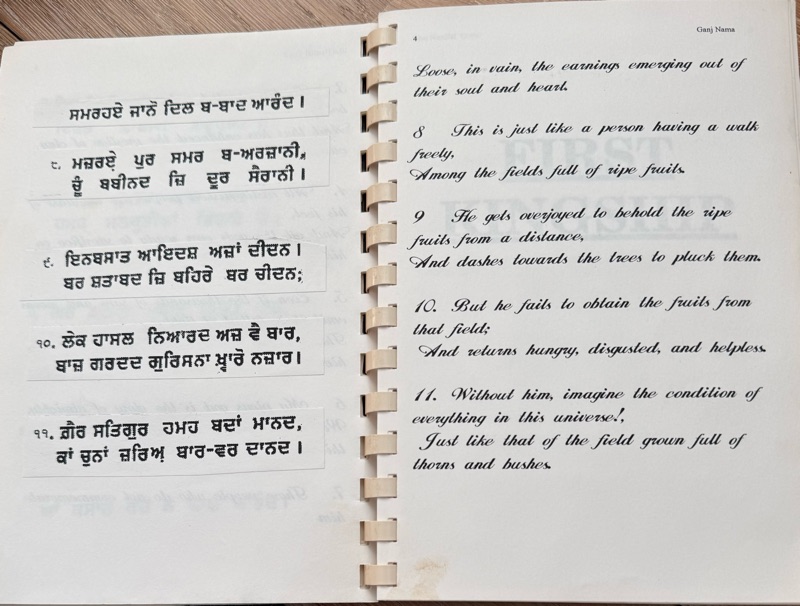 ਸਮਰਹਏ ਜਾਨੋ ਦਿਲ ਬ-ਬਾਦ ਆਰੰਦ।
੮. ਮਜ਼ਰਏ ਪੁਰ ਸਮਰ ਬ-ਅਰਜ਼ਾਨੀ,
ਚੂੰ ਬਬੀਨਦ ਜ਼ਿ ਦੂਰ ਸੈਰਾਨੀ।
੯. ਇਨਬਸਾਤ ਆਇਦਸ਼ ਅਜ਼ਾਂ ਦੀਦਨ।
ਬਰ ਸ਼ਤਾਬਦ ਜ਼ਿ ਬਹਿਰੇ ਬਰ ਚੀਦਨ;
੧੦. ਲੇਕ ਹਾਸਲ ਨਿਆਰਦ ਅਜ਼ ਵੈ ਬਾਰ,
ਬਾਜ਼ ਗਰਦਦ ਗੁਰਿਸਨਾ ਖ਼੍ਵਾਰੋ ਨਜ਼ਾਰ।
੧੧. ਗ਼ੈਰ ਸਤਿਗੁਰ ਹਮਹ ਬਦਾਂ ਮਾਨਦ,
ਕਾਂ ਚੁਨਾਂ ਜ਼ਰਿਅ਼ ਬਾਰ-ਵਰ ਦਾਨਦ।
4 Ganj Nama
Loose, in vain, the earnings emerging out of
their soul and heart.
8 This is just like a person having a walk
freely,
Among the fields full of ripe fruits.
9 He gets overjoyed to behold the ripe
fruits from a distance,
And dashes towards the trees to pluck them.
10. But he fails to obtain the fruits from
that field;
And returns hungry, disgusted, and helpless.
11. Without him, imagine the condition of
everything in this universe!,
Just like that of the field grown full of
thorns and bushes.
FIRST
KINGSHIP